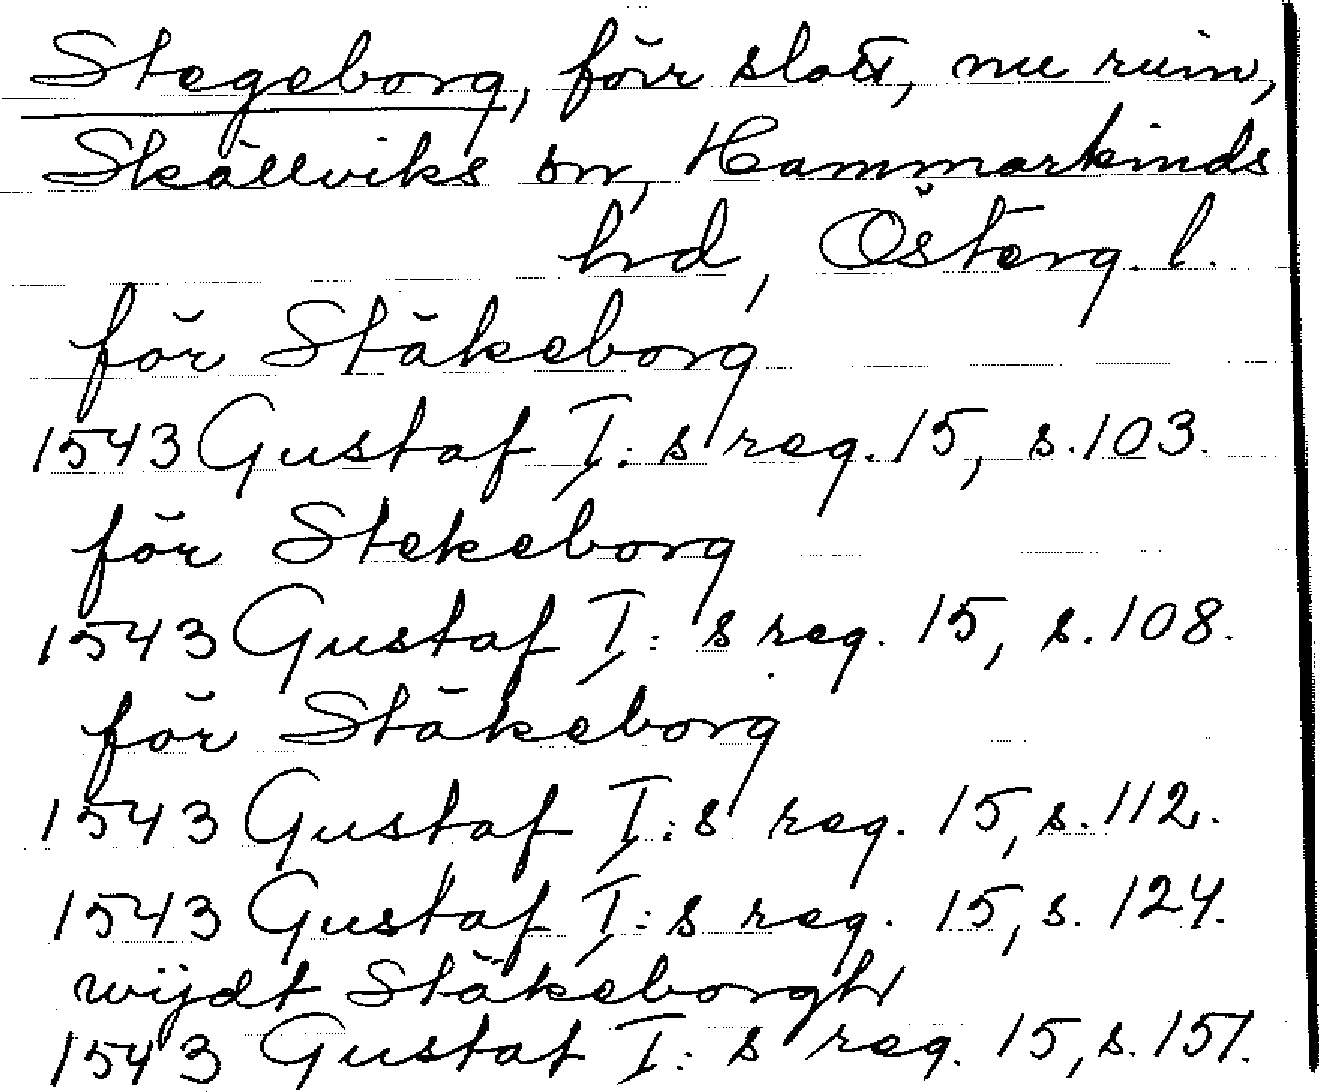 Stegeborg, förr slott, nu ruin,
Skällviks sn, Hammarkinds
hrd, Österg. l.
för Stäkeborg
1543 Gustaf I:s reg. 15, s. 103.
för Stekeborg
1543 Gustaf I:s reg. 15, s. 108.
för Stäkeborg
1543 Gustaf I:s reg. 15, s. 112.
1543 Gustaf I:s reg. 15, s. 124.
wijdt Stäkeborgh
1543 Gustaf I:s reg. 15, s. 151.